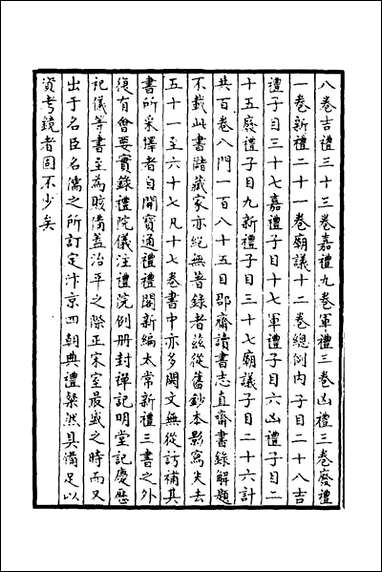 八卷吉禮三十三卷嘉禮九卷軍禮三卷凶禮三卷廢禮
一卷新禮二十一卷廟議十二卷總例內子目二十八吉
禮子目三十七嘉禮子目十七軍禮子目六凶禮子目二
十五廢禮子目九新禮子目三十七廟議子目二十六計
共百卷八門一百八十五目郡齋讀書志直齋書錄解題
不載此書儲藏家亦絕無著錄者茲從舊鈔本影寫失去
五十一至六十七凡十七卷書中亦多闕文無從訪補其
書所采擇者自開寶通禮禮閣新編太常新禮三書之外
復有會要實錄禮院儀注禮院例冊封禪記明堂記慶厯
祀儀等書至為賅備蓋治平之際正宋室最盛之時而又
出于名臣名儒之所訂定汴京四朝典禮粲然具備足以
資考鏡者固不少矣